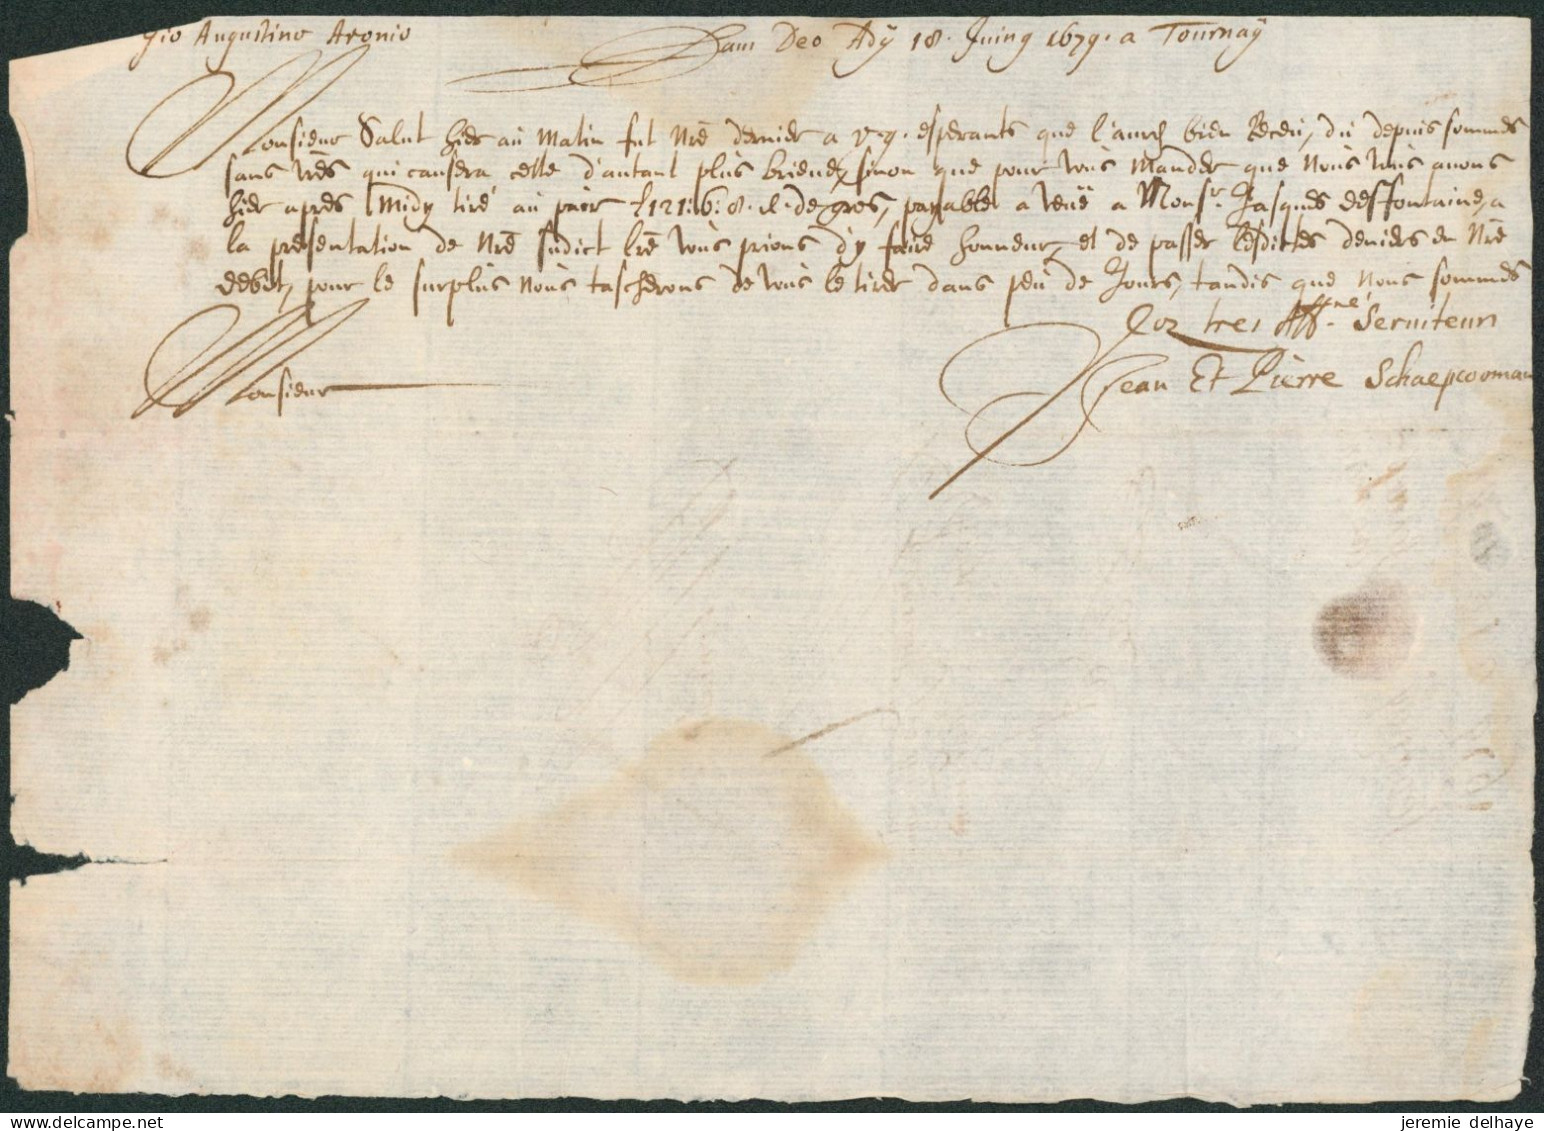 Gio Augustino Aronio
Laus Deo Ady 18. Juing 1679. a Tournaÿ
Monsieur Salut hier au Matin fut Nre dernier a V.g. esperants que l'aurez bien Receu, du depuis sommes
sans Vres qui causera celle d'autant plus brieve, sinon que pour vous Mander que Nous vous avons
hier apres Midy tiré au pair £121:6:8. de gros, payable a veüe a Monsr. Jasques desfontaine, a
la presentation de Nre sudict lre vous prions d'y faire honneur, et de passer lesdittes deniers en Nre
debet, pour le surplus Nous tascherons de vous le tirer dans peu de Jours, tandis que Nous sommes
Voz tres Affné. Serviteurs
Monsieur
Jean Et Pierre Schaepcooman
jeremie delhaye